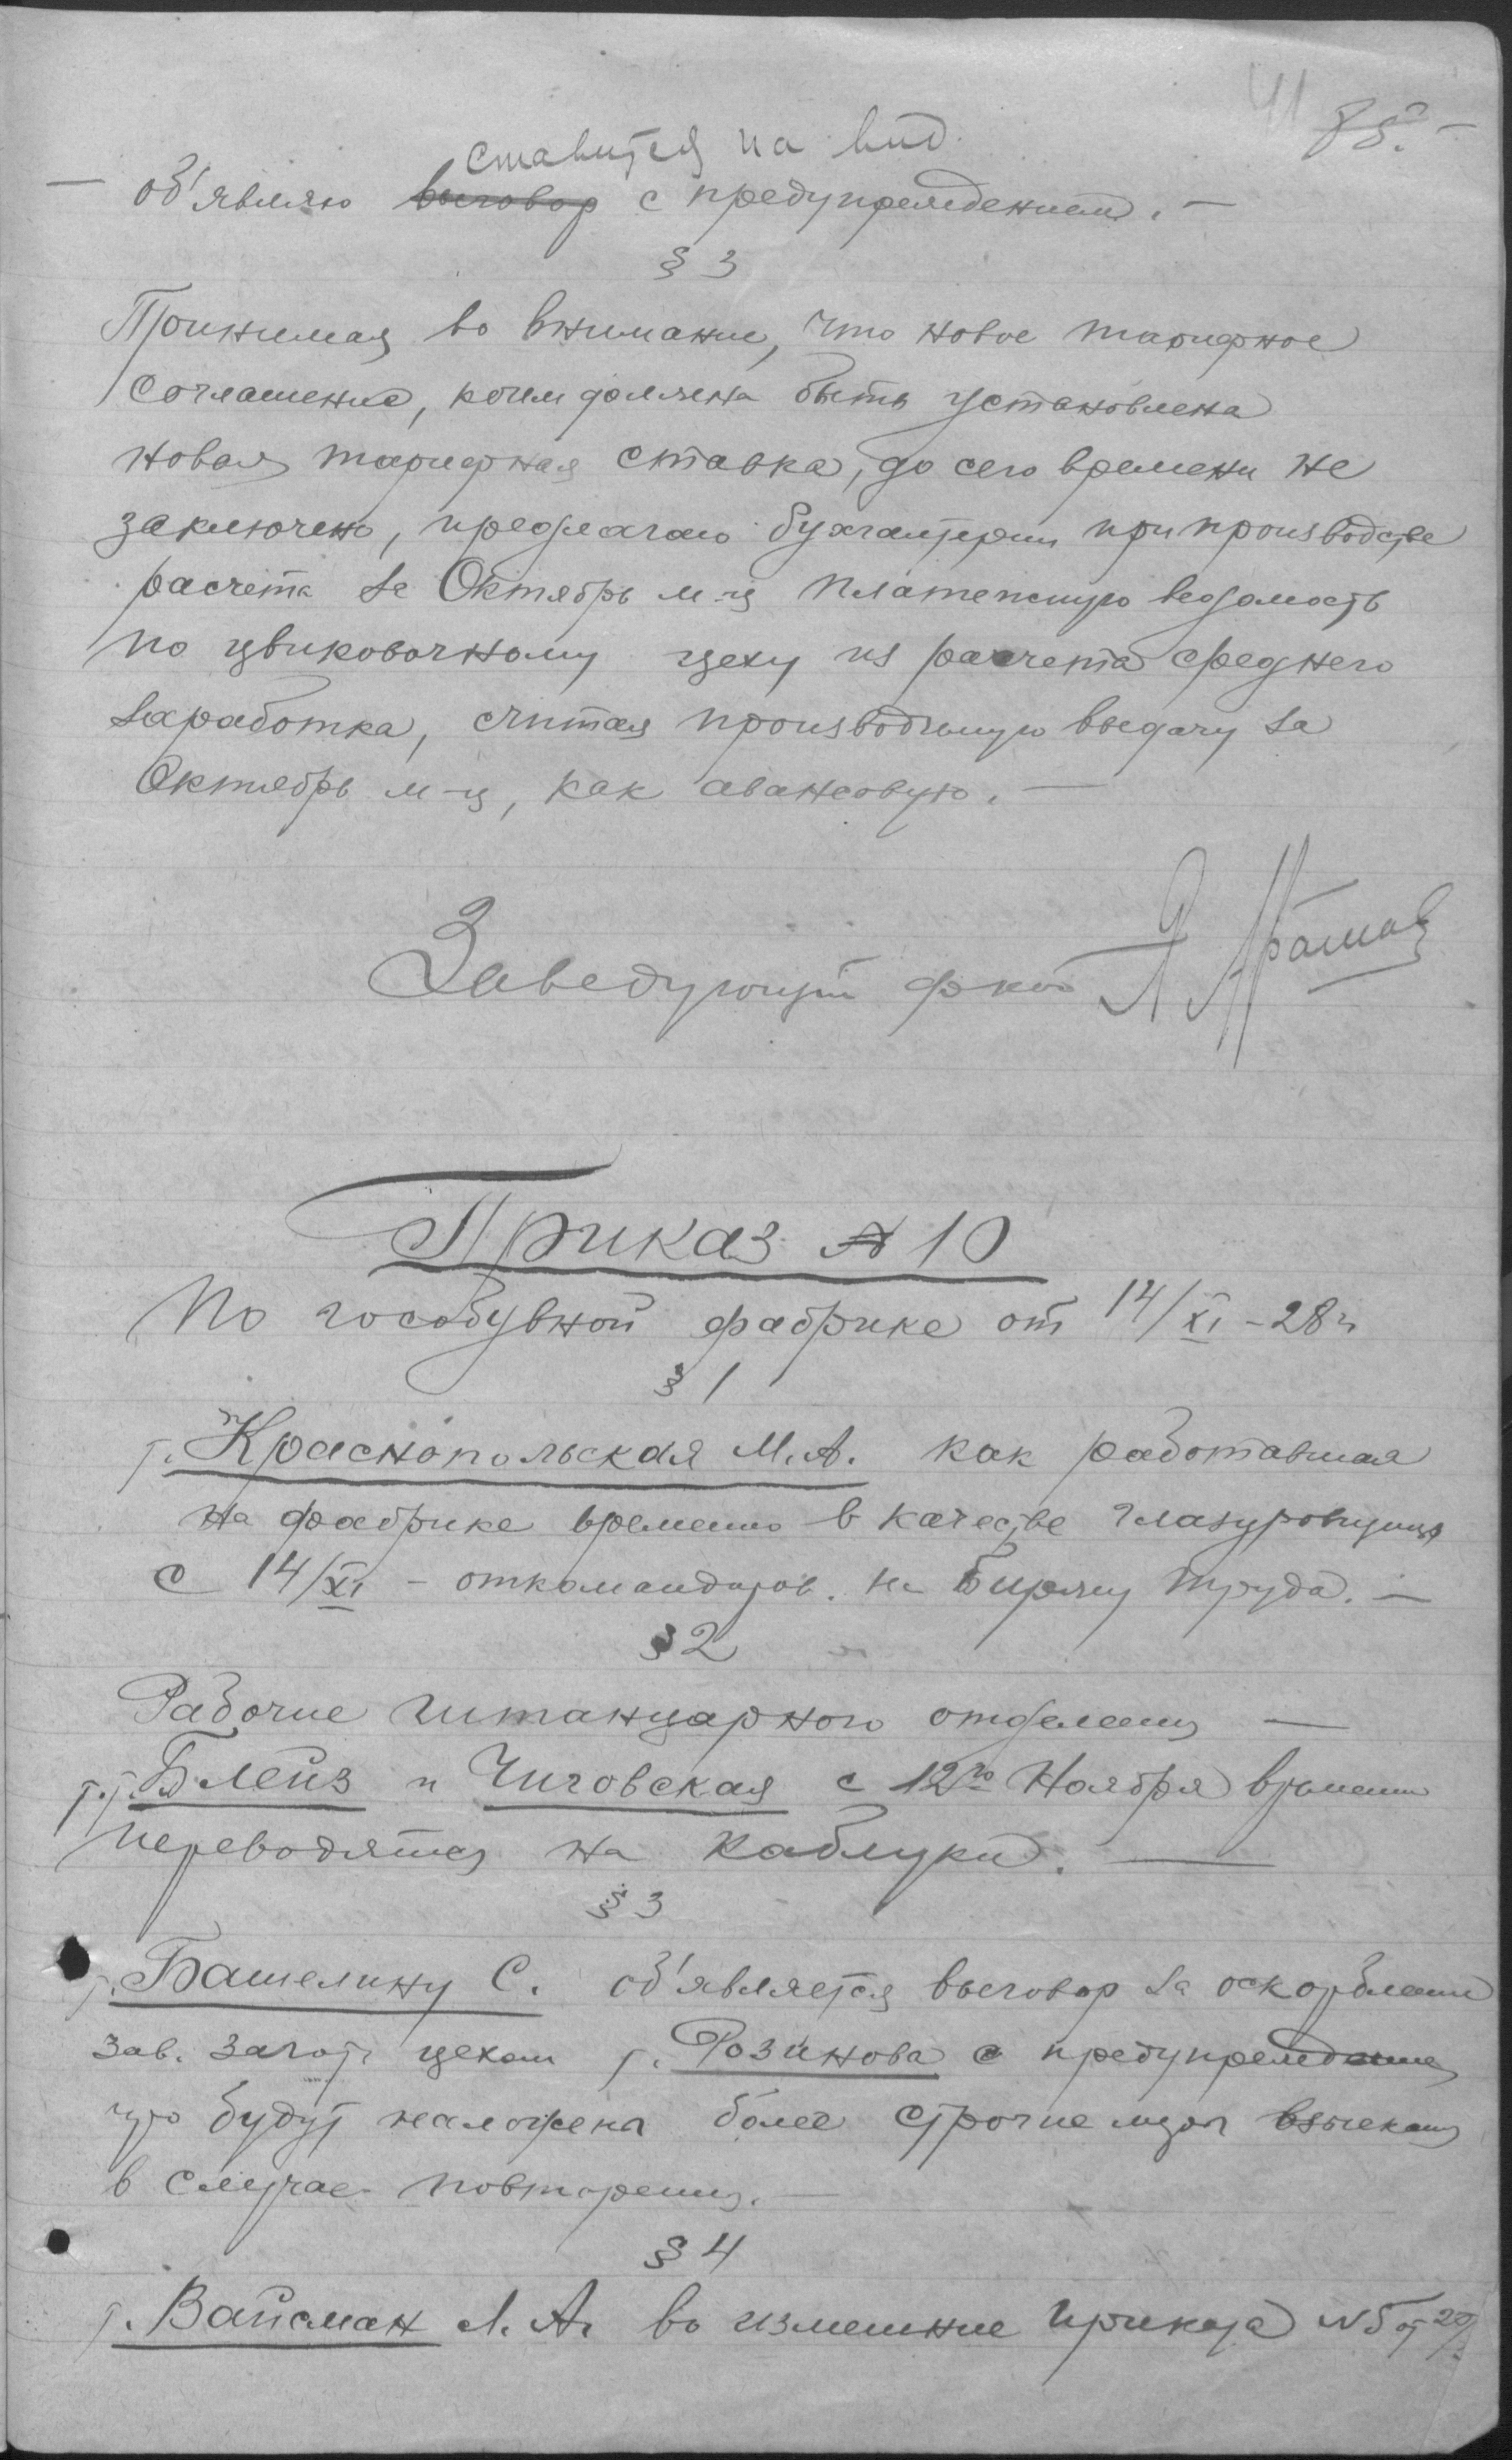 41 85.-
ставится на вид.
— об'являю выговор с предупреждением. —
§ 3
Принимая во внимание, что новое тарифное
соглашение, коим должна быть установлена
новая тарифная ставка, до сего времени не
заключено, предлагаю бухгалтерии при производстве
расчета за Октябрь м-ц платежную ведомость
по цвиковочному цеху из расчета среднего
заработка, считая производимую выдачу за
Октябрь м-ц, как авансовую. —
Заведующий ф-кой
Приказ № 10
По гособувной фабрике от 14/XI - 28 г
§ 1
т. Краснопольская М.А. как работавшая
на фабрике временно в качестве глазуровщицы
с 14/XI - откомандиров. на Биржу труда. —
§ 2
Рабочие штанцарного отделения —
т.т. Блейз и Чиговская с 12го Ноября временно
переводятся на каблуки. —
§ 3
т. Башелину С. об'является выговор за оскорбление
зав. загот. цехом т. Розинова с предупреждением
что будут наложены более строгие меры взыскания
в случае повторения. —
§ 4
т. Вайсман Л. А. во изменение приказа № 5 от 20/